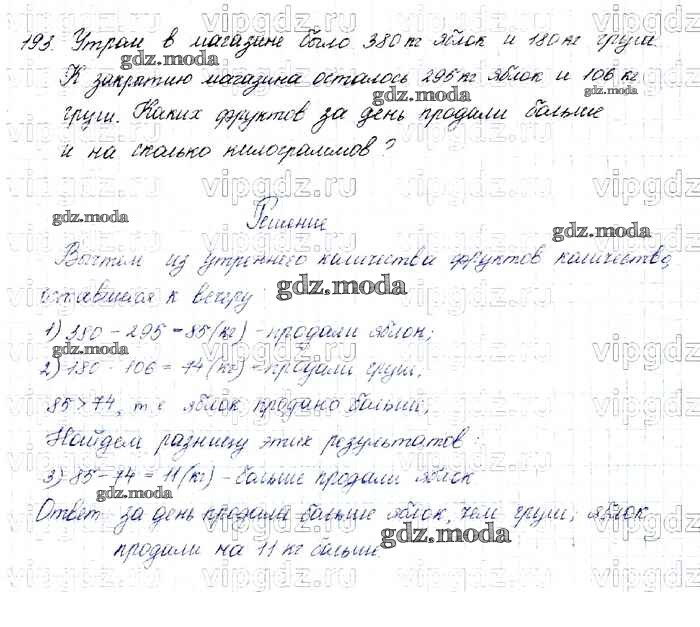 193. Утром в магазине было 380 кг яблок и 180 кг груш.
К закрытию магазина осталось 295 кг яблок и 106 кг
груш. Каких фруктов за день продали больше
и на сколько килограммов?
Решение
Вычтем из утреннего количества фруктов количество,
оставшееся к вечеру:
1) 380 - 295 = 85 (кг) - продали яблок;
2) 180 - 106 = 74 (кг) - продали груш;
85 > 74, т.е. яблок продано больше;
Найдем разницу этих результатов:
3) 85 - 74 = 11 (кг) - больше продали яблок
Ответ: за день продали больше яблок, чем груш; яблок
продали на 11 кг больше.
vipgdz.ru
gdz.moda